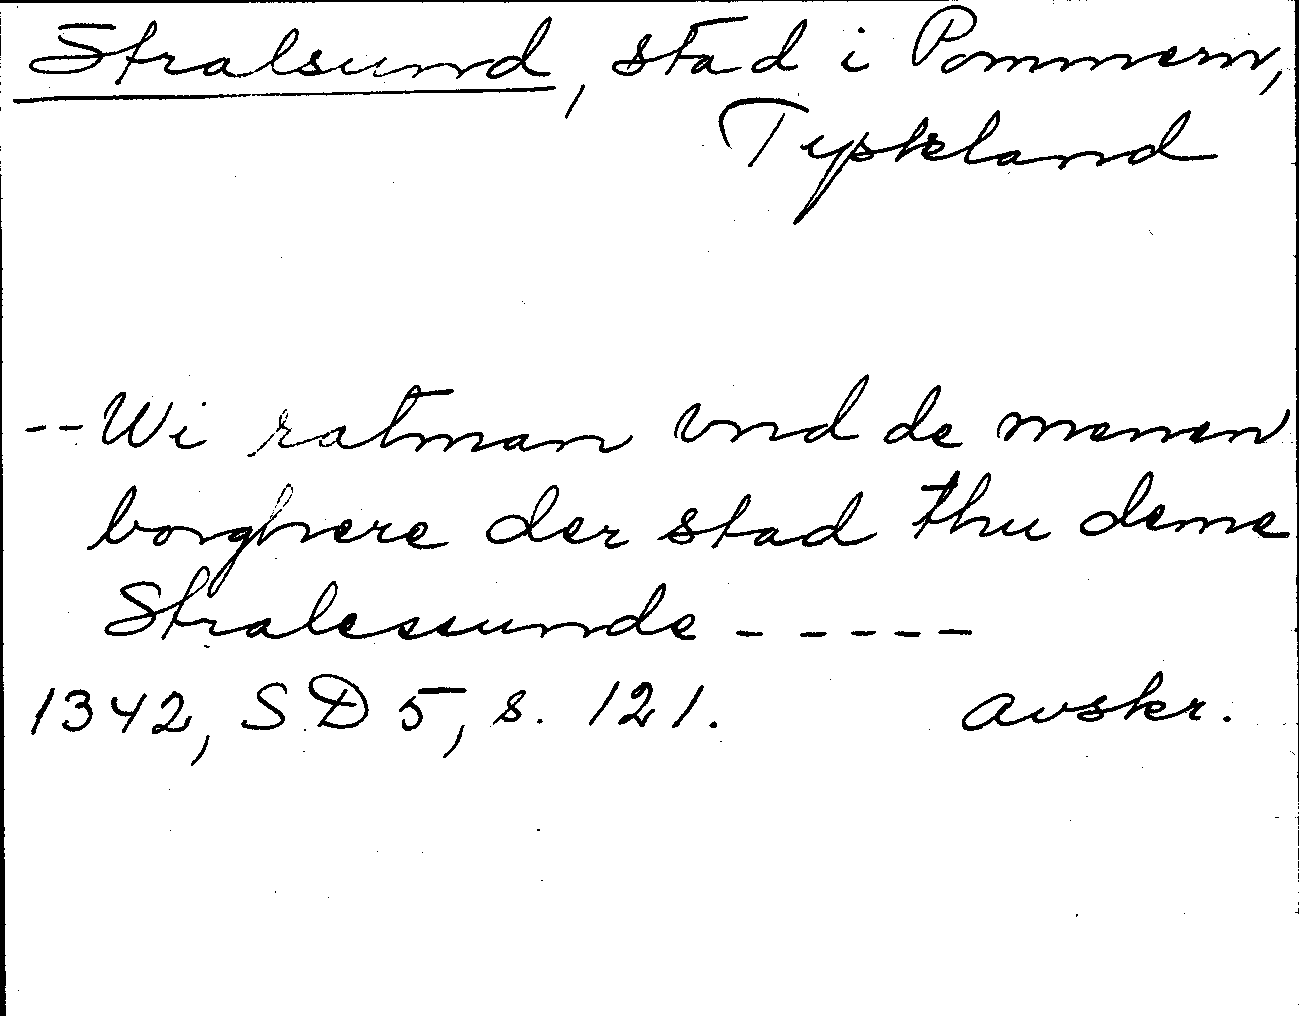 Stralsund, stad i Pommern,
Tyskland
-- Wi ratman vnd de menen
borghere der stad thu deme
Stralessunde -----
1342, SD 5, s. 121. avskr.